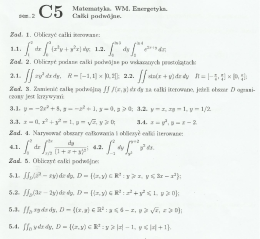 zest. 2 C5 Matematyka. WM. Energetyka.
Całki podwójne.
Zad. 1. Obliczyć całki iterowane:
1.1. dx (x²y + y²x) dy, 1.2. dx
Zad. 2. Obliczyć podane całki podwójne po wskazanych prostokątach:
2.1. ∬ xy² dx dy, R = [−1, 1] × [0, 2]; 2.2. ∬ sin(x + y) dx dy
Zad. 3. Zamienić całkę podwójną ∬ f(x, y) dx dy na całki iterowane, jeżeli obszar D ograni-
czony jest krzywymi:
3.2. y = x, xy = 1, y = 1/2.
3.3. x = 0, x² + y² = 1, y = √x, y ≥ 0; 3.4. x = y², y = x − 2
Zad. 4. Narysować obszary całkowania i obliczyć całki iterowane:
4.1. dx dy / (1 + x + y)², 4.2. dy y² dx.
Zad. 5. Obliczyć całki podwójne:
5.1. ∬D (x² − xy) dx dy, D = {(x, y) ∈ R² : y ≥ x, y ≤ 3x − x²};
5.2. ∬D (3x − 2y) dx dy, D = {(x, y) ∈ R² : x² + y² ≤ 1, y ≥ 0};
5.3. ∬D xy dx dy, D = {(x, y) ∈ R² : y ≤ 6 − x, y ≥ √x, x ≥ 0};
5.4. ∬D y dx dy, D = {(x, y) ∈ R² : y ≥ |x| − 1,